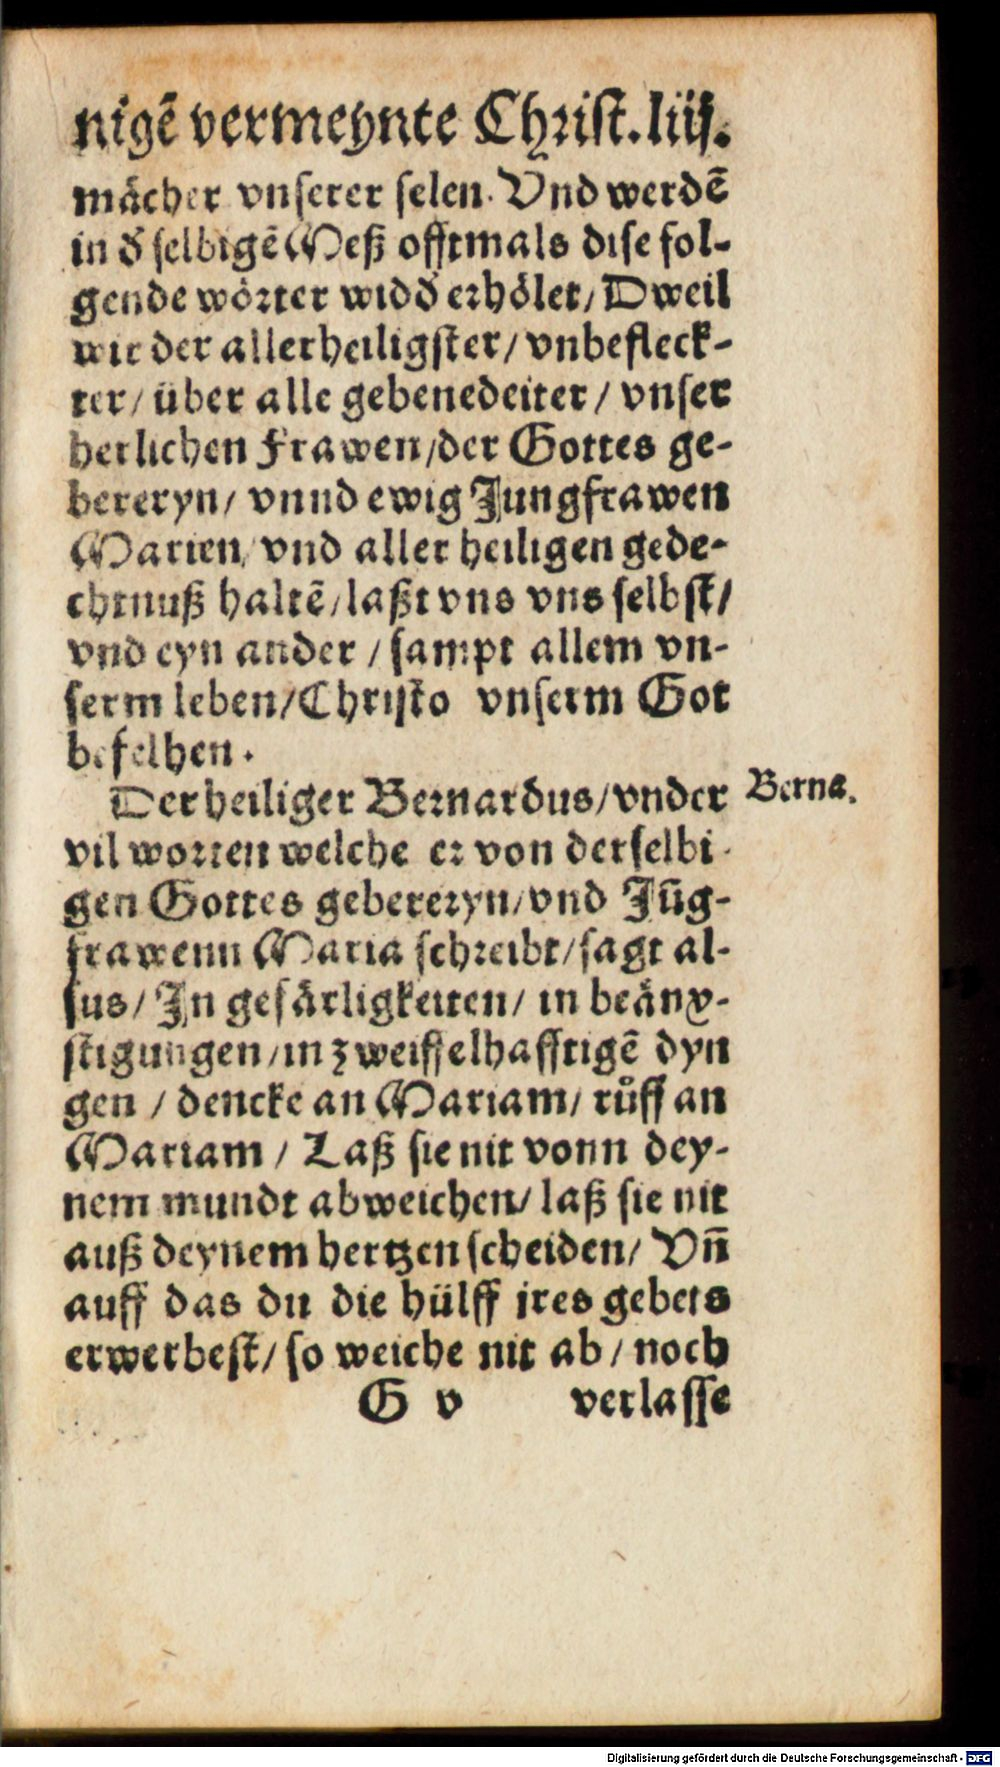 nigẽ vermeynte Christ. liij.
mácher vnserer selen. Vnd werdẽ
in đ selbigẽ Meß offtmals dise fol-
gende wörter widđ erhölet/ Dweil
wir der allerheiligster/ vnbefleck-
ter/ über alle gebenedeiter/ vnser
herlichen Frawen/der Gottes ge-
bereryn/ vnnd ewig Jungfrawen
Marien/ vnd aller heiligen gede-
chtnuß haltẽ/laßt vns vns selbst/
vnd eyn ander/ sampt allem vn-
serm leben/Christo vnserm Got
befelhen.
Der heiliger Bernardus/vnder
Berna.
vil worten welche er von derselbi-
gen Gottes gebereryn/vnd Jũg-
frawenn Maria schreibt/sagt al-
sus/ Jn gefärligkeiten/ in beäng-
stigungen/in zweiffelhafftigẽ dyn
gen/ dencke an Mariam/ růff an
Mariam/ Laß sie nit vonn dey-
nem mundt abweichen/ laß sie nit
auß deynem hertzen scheiden/ Vñ
auff das du die hülff jres gebets
erwerbest/ so weiche nit ab/ noch
G v verlasse
Digitalisierung gefördert durch die Deutsche Forschungsgemeinschaft - DFG